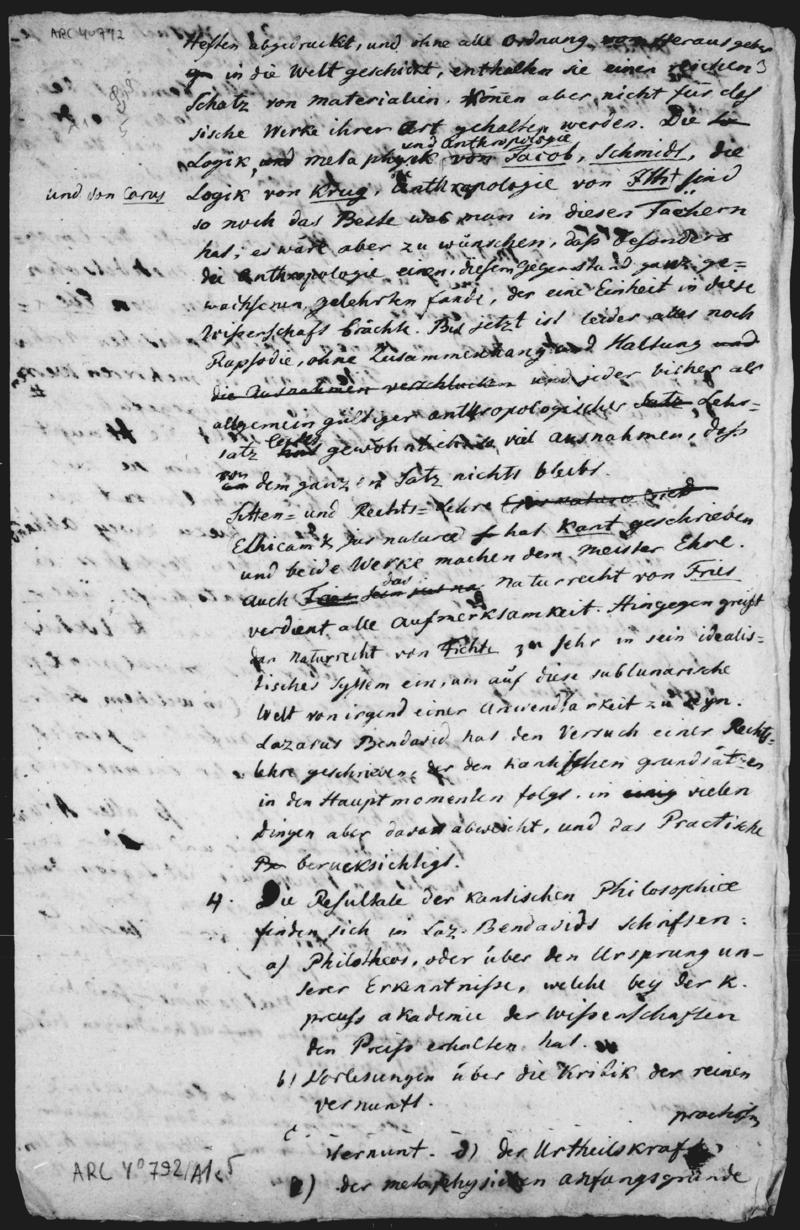 ARC 4° 792
Heften abgedruckt, und ohne alle Ordnung vom Herausgeber
in die Welt geschickt, enthalten sie einen reichen
3
Schatz von Materialien, können aber nicht für klas
sische Werke ihrer Art gehalten werden. Die
und Anthropologie
Logik, und Metaphysik von Jacob, Schmidt, die
und von Carus
Logik von Krug, Anthropologie von Ith sind
so noch das Beste was man in diesen Fächern
hat; es wäre aber zu wünschen, daß besonders
die Anthropologie einen, diesem Gegenstand ganz ge=
wachsenen, gelehrten fände, der eine Einheit in diese
Wissenschaft brächte. Bis jetzt ist leider alles noch
Rapsodie, ohne Zusammenhang und Haltung und
die Ausnahmen verschlucken und jeder bisher als
allgemein gültiger anthropologischer Satz Lehr=
satz leidet gewöhnlich so viel Ausnahmen, daß
von dem ganzen Satz nichts bleibt.
Sitten= und Rechts=Lehre
Ethicam & jus naturae hat Kant geschrieben
und beide Werke machen dem Meister Ehre.
Auch das Naturrecht von Fries
verdient alle Aufmerksamkeit. Hingegen greift
das Naturrecht von Fichte zu sehr in sein idealis=
tisches System ein, um auf diese sublunarische
Welt von irgend einer Anwendbarkeit zu seyn.
Lazarus Bendavid hat den Versuch einer Rechts=
lehre geschrieben, der den Kantischen Grundsätzen
in den Hauptmomenten folgt, in einig vielen
Dingen aber davon abweicht, und das Practische
berucksichtigt.
4. Die Resultate der Kantischen Philosophie
finden sich in Laz. Bendavids Schriften:
a) Philotheos, oder über den Ursprung un-
serer Erkenntniße, welche bey der K.
preuß Akademie der Wißenschaften
den Preiß erhalten hat.
b) Vorlesungen über die Kritik der reinen
Vernunft.
c practischen
Vernunt. d) der Urtheilskraft,
e) der metaphysischen Anfangsgründe
ARC 4° 792/A1c5